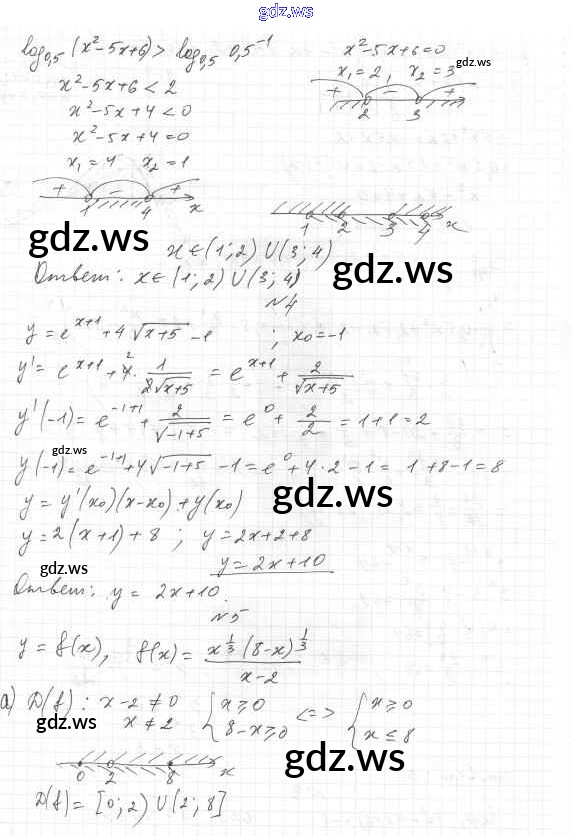 gdz.ws
log₀,₅ (x²-5x+6) > log₀,₅ 0,5⁻¹
x²-5x+6=0
x²-5x+6 < 2
x₁=2, x₂=3
gdz.ws
x²-5x+4 < 0
+ - +
2 3
x²-5x+4=0
x₁=4 x₂=1
+ - +
1 4 x
1 2 3 4 x
gdz.ws
x∈(1;2)∪(3;4)
gdz.ws
Ответ: x∈(1;2)∪(3;4)
№4
y=e^(x+1)+4√(x+5)-1 ; x₀=-1
y'=e^(x+1)+4²·1/(2√(x+5)) = e^(x+1)+2/√(x+5)
y'(-1)=e^(-1+1)+2/√(-1+5) = e⁰+2/2=1+1=2
gdz.ws
y(-1)=e^(-1+1)+4√(-1+5) -1=e⁰+4·2-1= 1+8-1=8
gdz.ws
y=y'(x₀)(x-x₀)+y(x₀)
y=2(x+1)+8 ; y=2x+2+8
y=2x+10
gdz.ws
Ответ: y= 2x+10.
№5
y=f(x), f(x)= x^(1/3)(8-x)^(1/3)/(x-2)
а) D(f): x-2≠0 {x≥0 <=> {x≥0
gdz.ws
x≠2 8-x≥0 x≤8
gdz.ws
0 2 8 x
D(f)=[0;2)∪(2;8]